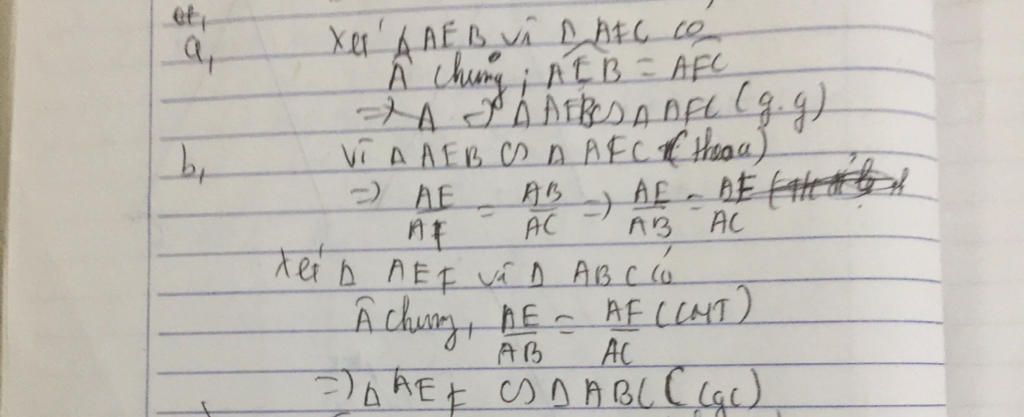 a, Xét Δ AEB và Δ AFC có
Â chung ; AÊB = AFC
=> A => Δ AEB ∽ Δ AFC (g.g)
b, Vì Δ AEB ∽ Δ AFC (theo a)
=> AE/AF = AB/AC => AE/AB = AF/AC
Xét Δ AEF và Δ ABC có
Â chung, AE/AB = AF/AC (CMT)
=> Δ AEF ∽ Δ ABC (cgc)